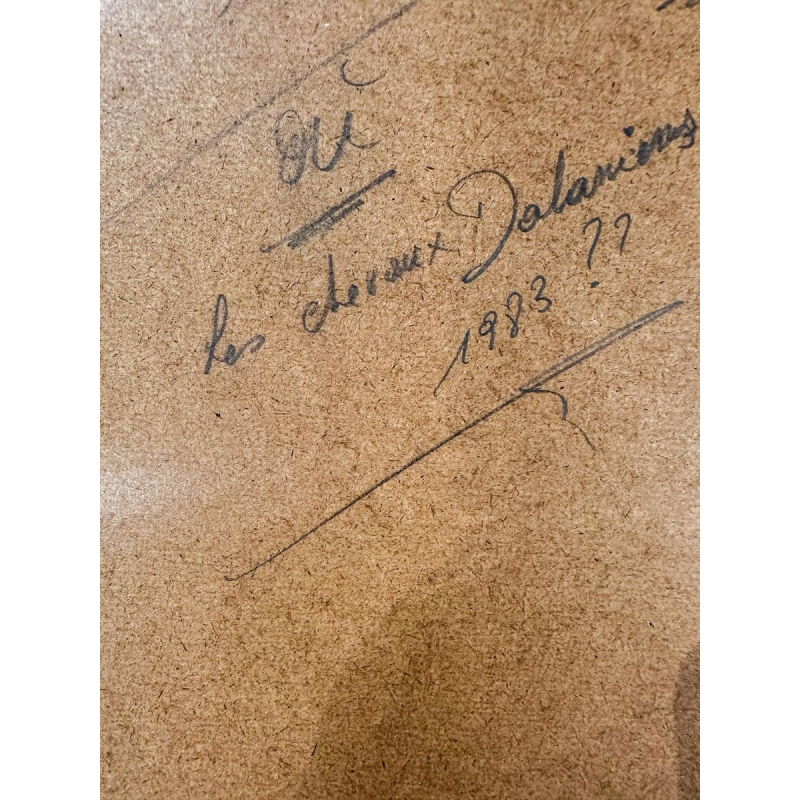 ou
Les chevaux Dalaniens
1983 ??